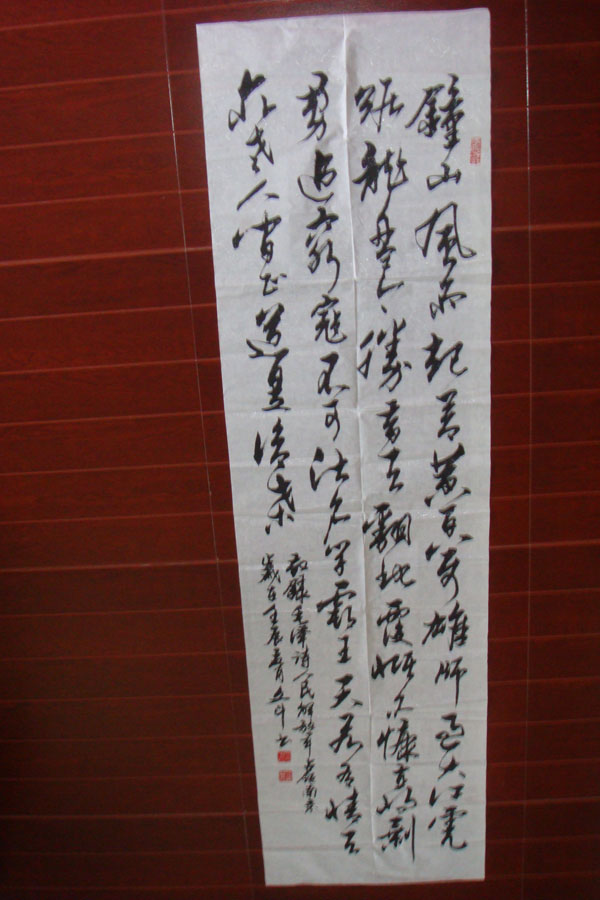 鐘山風雨起蒼黃百萬雄師過大江虎
踞龍盤今勝昔天翻地覆慨而慷宜將剩
勇追窮寇不可沽名學霸王天若有情天
亦老人間正道是滄桑
毛澤詩人民解放軍占領南京
歲在壬辰月书